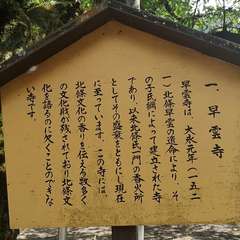 一、早雲寺
早雲寺は、大永元年(一五二
一)北條早雲の遺命により、そ
の子氏綱によって建立された寺
であり、以来北條氏一門の香火所
としてその盛衰をともにし現在
に至っています。この寺には
北條文化の香りを伝える数多く
の文化財が残されており北條文
化を語るのに欠くことのできな
い寺です。